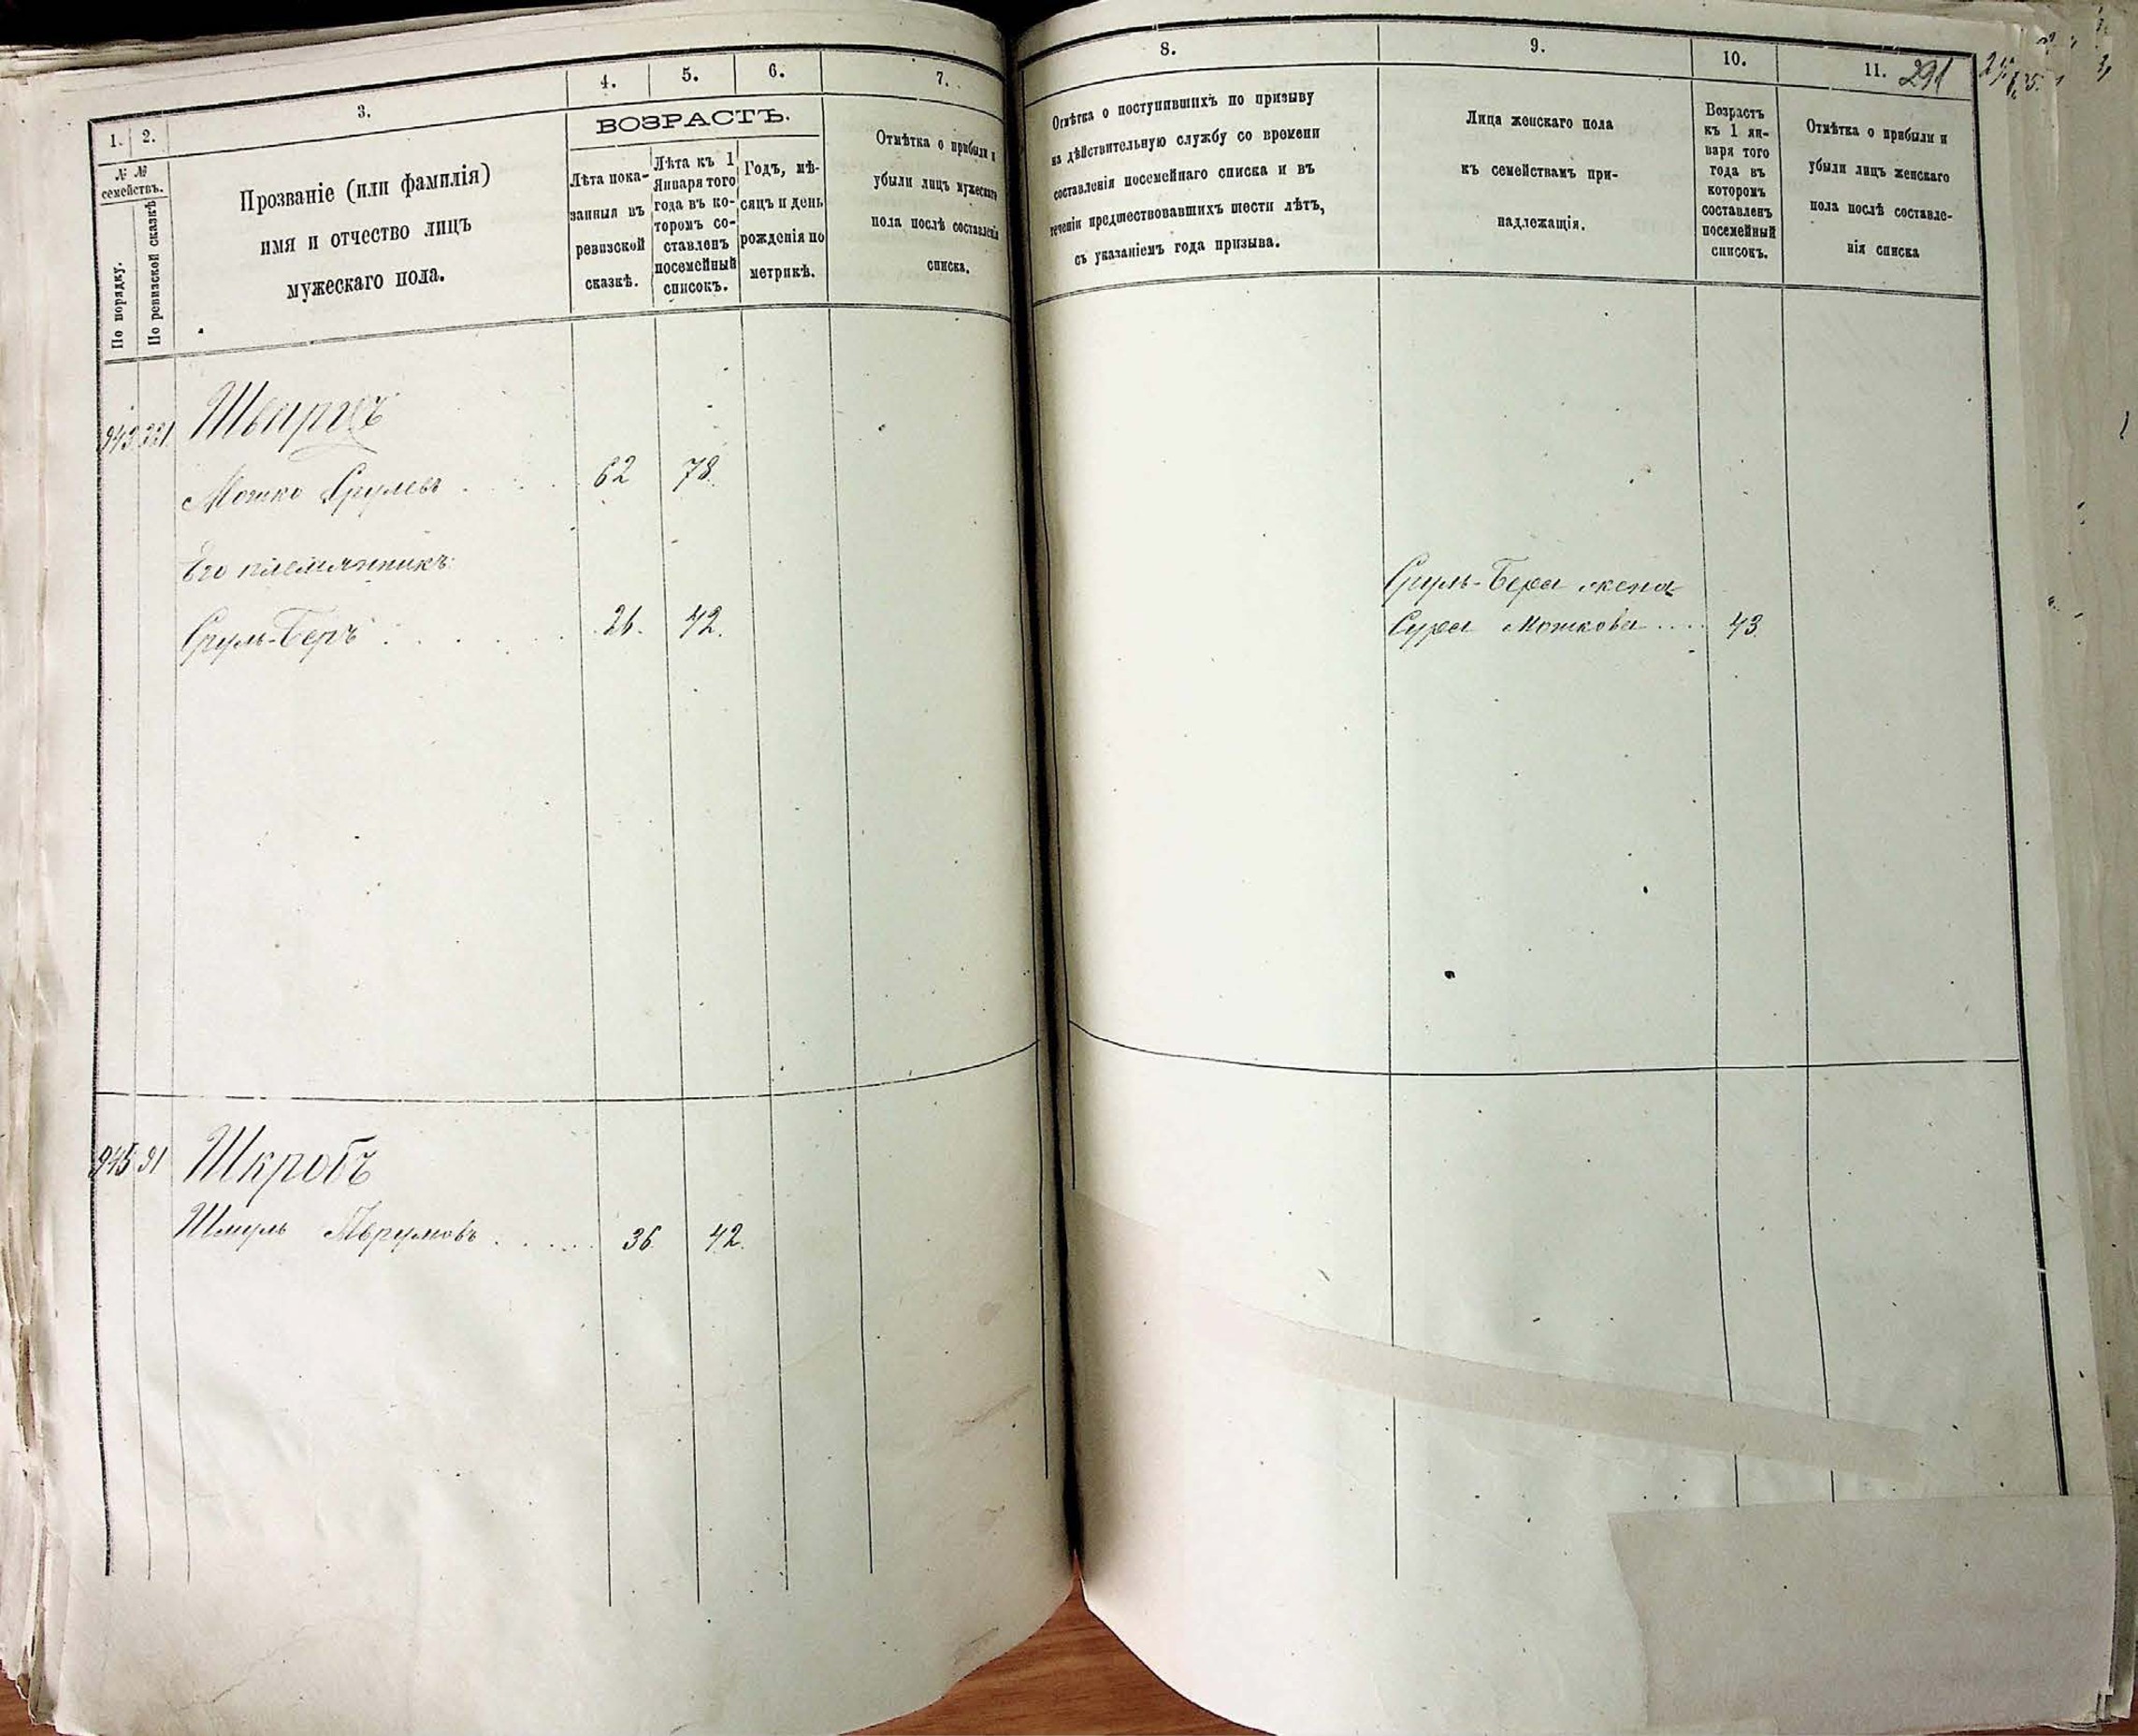 1.
2.
3.
4.
5.
6.
7.
№ №
семействъ.
По порядку.
По ревизской сказкѣ
Прозваніе (или фамилія)
имя и отчество лицъ
мужескаго пола.
ВОЗРАСТЪ.
Лѣта пока-
занныя въ
ревизской
сказкѣ.
Лѣта къ 1
Января того
года въ ко-
торомъ со-
ставленъ
посемейный
списокъ.
Годъ, мѣ-
сяцъ и день
рожденія по
метрикѣ.
Отмѣтка о прибыли и
убыли лицъ мужескаго
пола послѣ составленія
списка.
Шварцъ
Мошко Срулевъ
62
78
Его племянникъ:
Сруль-Беръ
26.
42.
945
91
Шкробъ
Шмуль Аврумовъ
36
42
8.
9.
10.
11.
291
Отмѣтка о поступившихъ по призыву
на дѣйствительную службу со времени
составленія посемейнаго списка и въ
теченіи предшествовавшихъ шести лѣтъ,
съ указаніемъ года призыва.
Лица женскаго пола
къ семействамъ при-
надлежащія.
Возрастъ
къ 1 ян-
варя того
года въ
которомъ
составленъ
посемейный
списокъ.
Отмѣтка о прибыли и
убыли лицъ женскаго
пола послѣ составле-
нія списка
Сруль-Бера жена
Сура Мошкова
43